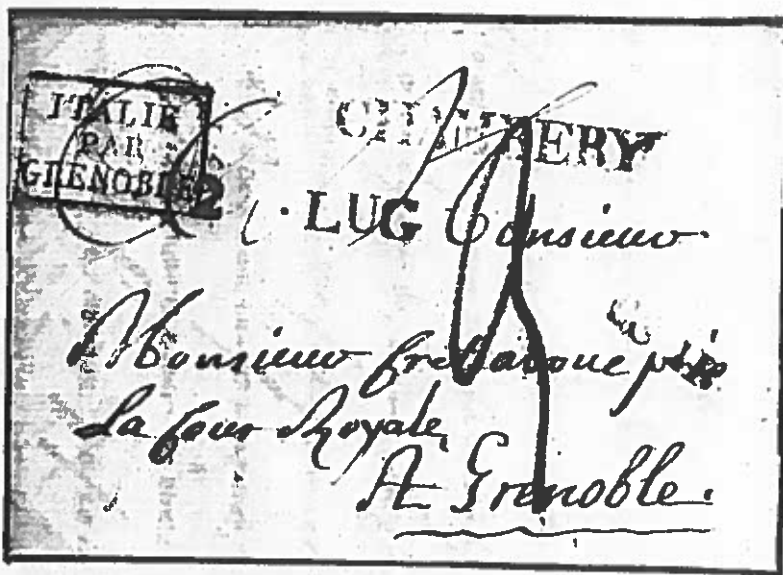 ITALIE
PAR
GRENOBLE
CHAMBERY
2 LUG
Monsieur
Monsieur avoué près
La Cour Royale,
A Grenoble.